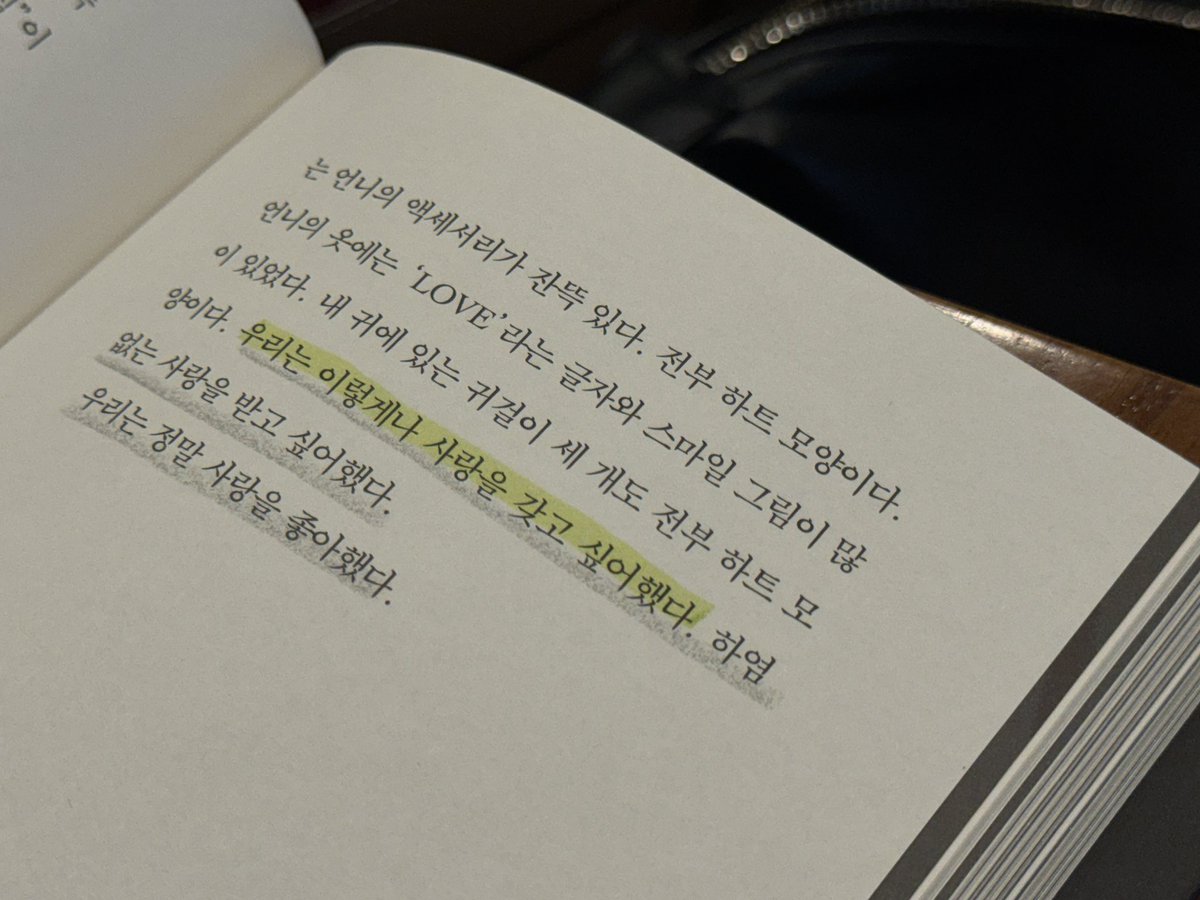 는 언니의 액세서리가 잔뜩 있다. 전부 하트 모양이다.
언니의 옷에는 ‘LOVE’라는 글자와 스마일 그림이 많
이 있었다. 내 귀에 있는 귀걸이 세 개도 전부 하트 모
양이다. 우리는 이렇게나 사랑을 갖고 싶어했다. 하염
없는 사랑을 받고 싶어했다.
우리는 정말 사랑을 좋아했다.